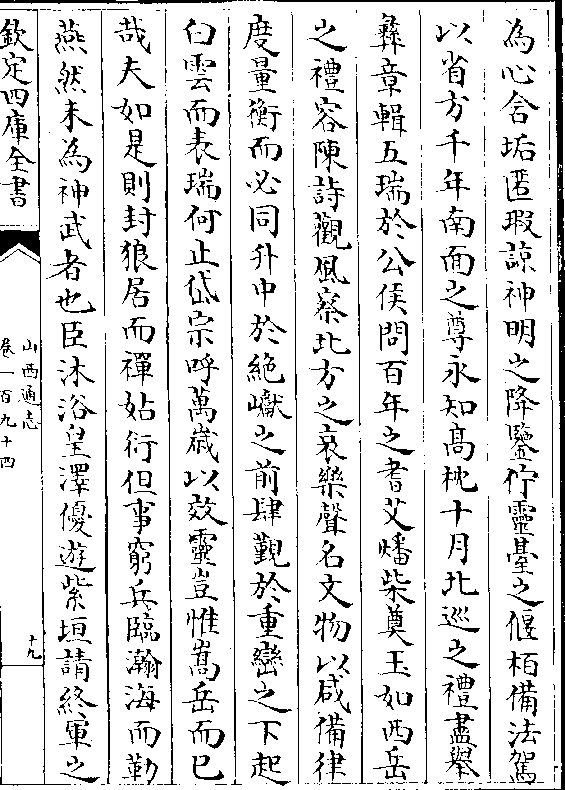 為心含垢匿瑕諒神明之降鑒佇靈臺之偃栢備法駕
以省方千年南面之尊永知髙枕十月北巡之禮盡舉
彝章輯五瑞於公侯問百年之耆艾燔柴奠玉如西岳
之禮容陳詩觀風察北方之哀樂聲名文物以咸備律
度量衡而必同升中於絶巘之前肆覲於重巒之下起
白雲而表瑞何止岱宗呼萬歲以效靈豈惟嵩岳而已
哉夫如是則封狼居而禪姑衍但事窮兵臨瀚海而勒
燕然未為神武者也臣沐浴皇澤優遊紫垣請終軍之
欽定四庫全書
山西通志
卷一百九十四
十九